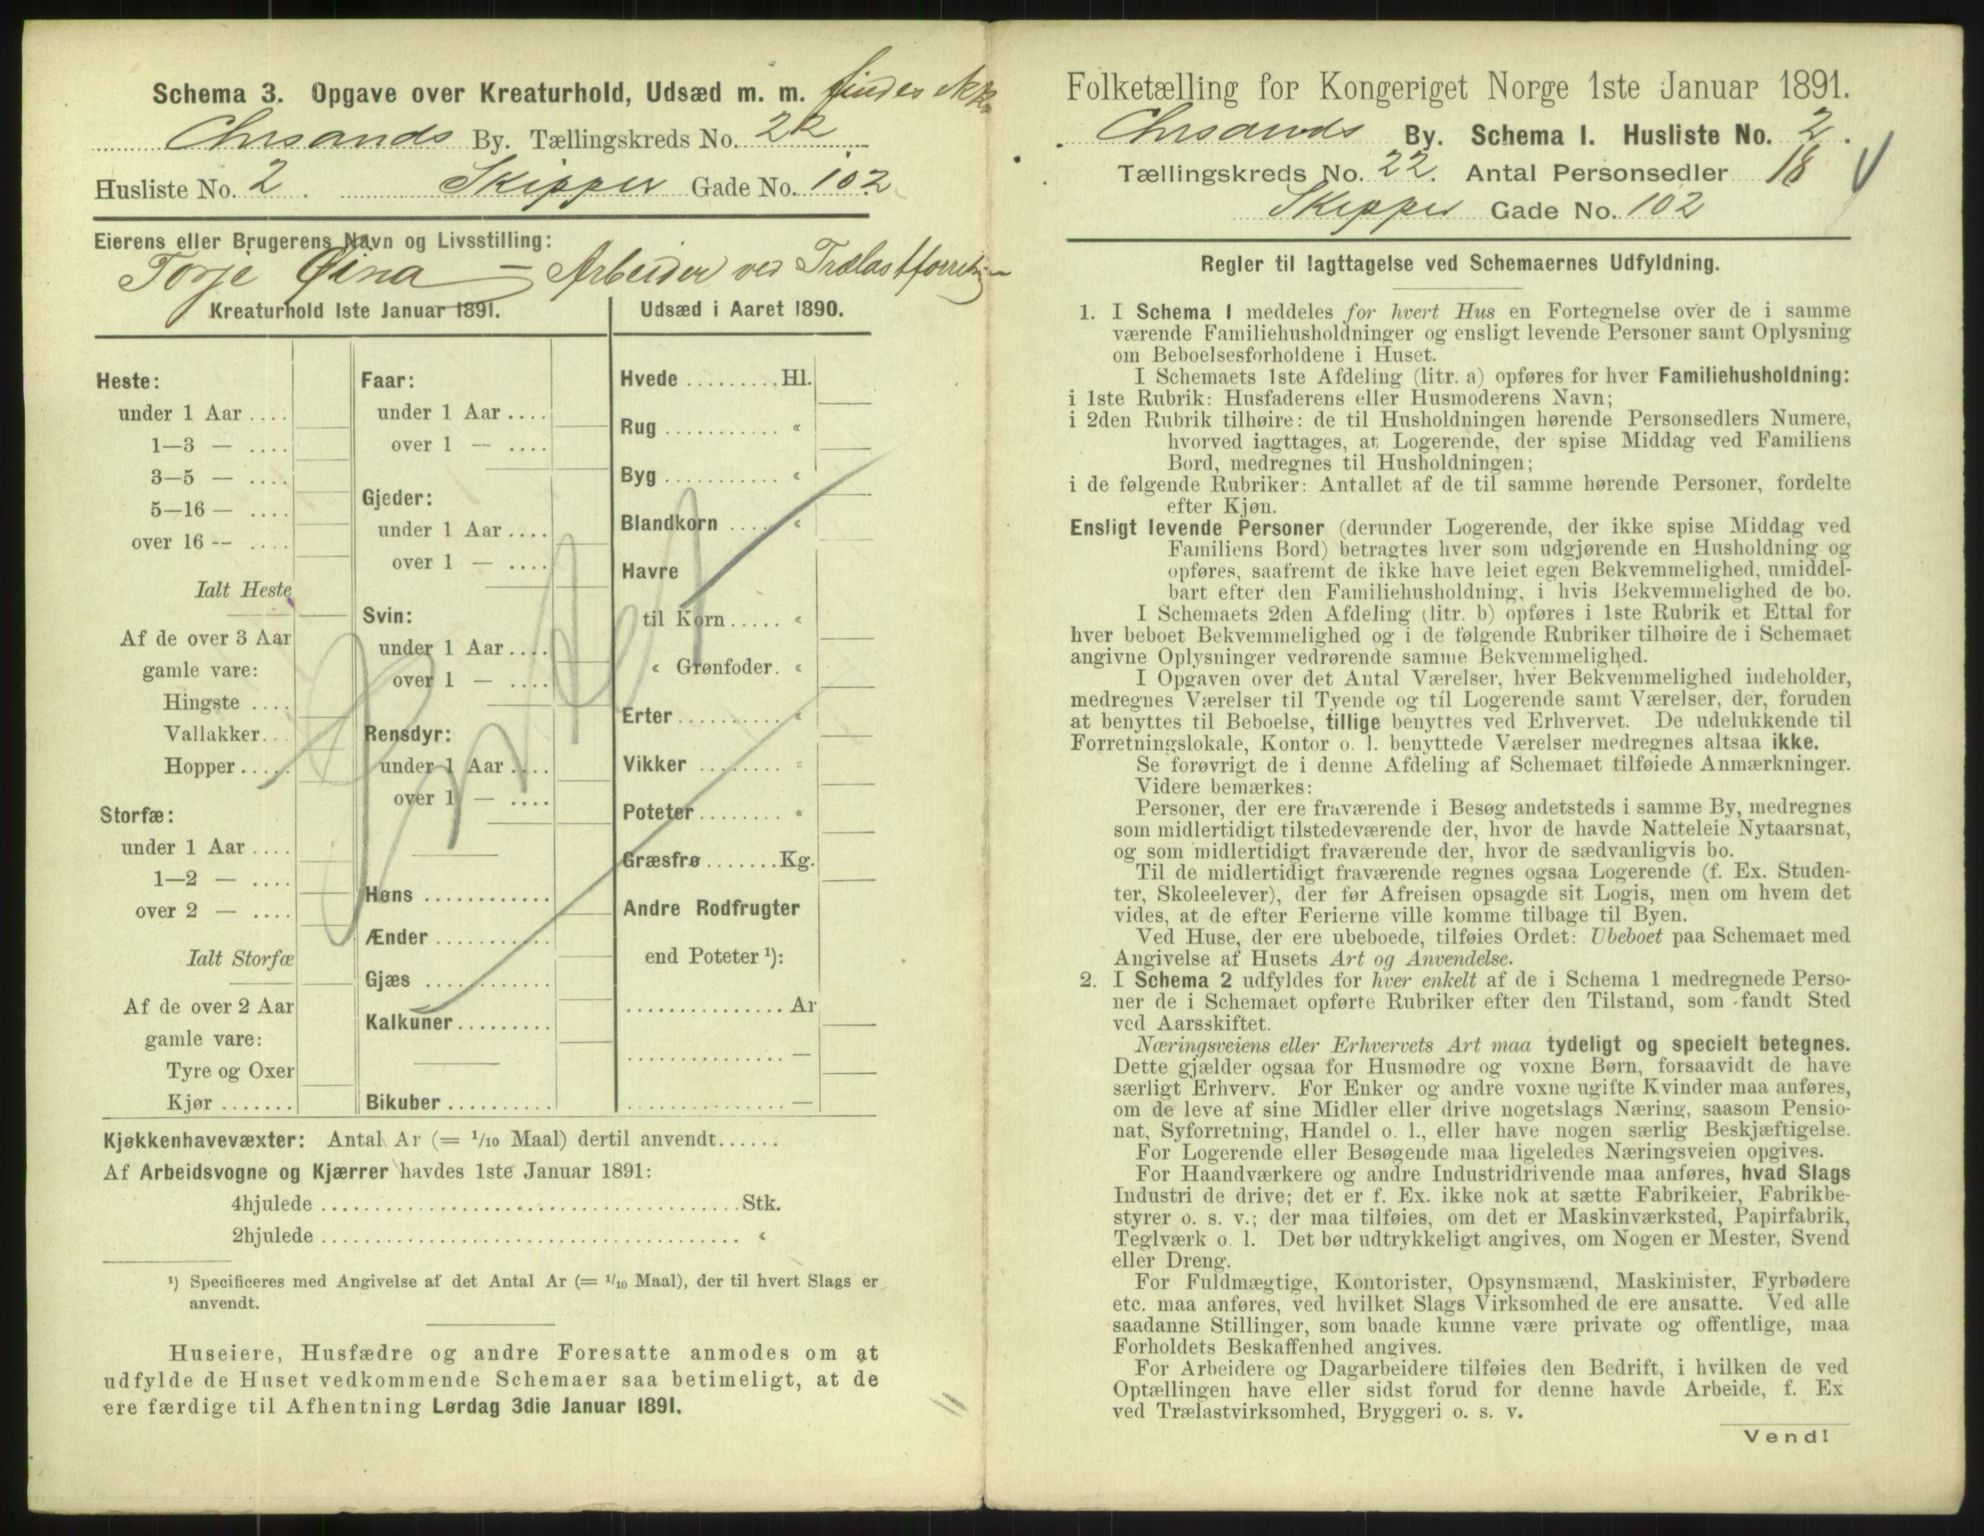 Schema 3. Opgave over Kreaturhold, Udsæd m. m. findes ikke
Chrsands By. Tællingskreds No. 22
Husliste No. 2. Skipper Gade No. 102
Eierens eller Brugerens Navn og Livsstilling:
Torje Øina — Arbeider ved Trælastforretn
Kreaturhold 1ste Januar 1891.
Heste:
under 1 Aar ....
1—3 — ....
3—5 — ....
5—16 — ....
over 16 -- ....
Ialt Heste
Af de over 3 Aar
gamle vare:
Hingste ....
Vallakker...
Hopper.....
Storfæ:
under 1 Aar ....
1—2 — ....
over 2 — ....
Ialt Storfæ
Af de over 2 Aar
gamle vare:
Tyre og Oxer
Kjør .......
Faar:
under 1 Aar ....
over 1 — ....
Gjeder:
under 1 Aar ....
over 1 — ....
Svin:
under 1 Aar ....
over 1 — ....
Rensdyr:
under 1 Aar ....
over 1 — ....
Høns ............
Ænder ...........
Gjæs ............
Kalkuner.........
Bikuber ..........
Udsæd i Aaret 1890.
Hvede .........Hl.
Rug ........... «
Byg ........... «
Blandkorn .... «
Havre
til Korn ..... «
« Grønfoder. «
Erter.......... «
Vikker ........ «
Poteter........ «
Græsfrø .......Kg.
Andre Rodfrugter
end Poteter ¹):
............... Ar
............... —
............... —
Kjøkkenhavevæxter: Antal Ar (= 1/10 Maal) dertil anvendt......
Af Arbeidsvogne og Kjærrer havdes 1ste Januar 1891:
4hjulede ......................................Stk.
2hjulede ...................................... «
¹) Specificeres med Angivelse af det Antal Ar (= 1/10 Maal), der til hvert Slags er
anvendt.
Huseiere, Husfædre og andre Foresatte anmodes om at
udfylde de Huset vedkommende Schemaer saa betimeligt, at de
ere færdige til Afhentning Lørdag 3die Januar 1891.
Folketælling for Kongeriget Norge 1ste Januar 1891.
Chrsands By. Schema I. Husliste No. 2.
Tællingskreds No. 22. Antal Personsedler 18
Skipper Gade No. 102
Regler til Iagttagelse ved Schemaernes Udfyldning.
1. I Schema I meddeles for hvert Hus en Fortegnelse over de i samme
værende Familiehusholdninger og ensligt levende Personer samt Oplysning
om Beboelsesforholdene i Huset.
I Schemaets 1ste Afdeling (litr. a) opføres for hver Familiehusholdning:
i 1ste Rubrik: Husfaderens eller Husmoderens Navn;
i 2den Rubrik tilhøire: de til Husholdningen hørende Personsedlers Numere,
hvorved iagttages, at Logerende, der spise Middag ved Familiens
Bord, medregnes til Husholdningen;
i de følgende Rubriker: Antallet af de til samme hørende Personer, fordelte
efter Kjøn.
Ensligt levende Personer (derunder Logerende, der ikke spise Middag ved
Familiens Bord) betragtes hver som udgjørende en Husholdning og
opføres, saafremt de ikke have leiet egen Bekvemmelighed, umiddel-
bart efter den Familiehusholdning, i hvis Bekvemmelighed de bo.
I Schemaets 2den Afdeling (litr. b) opføres i 1ste Rubrik et Ettal for
hver beboet Bekvemmelighed og i de følgende Rubriker tilhøire de i Schemaet
angivne Oplysninger vedrørende samme Bekvemmelighed.
I Opgaven over det Antal Værelser, hver Bekvemmelighed indeholder,
medregnes Værelser til Tyende og til Logerende samt Værelser, der, foruden
at benyttes til Beboelse, tillige benyttes ved Erhvervet. De udelukkende til
Forretningslokale, Kontor o. l. benyttede Værelser medregnes altsaa ikke.
Se forøvrigt de i denne Afdeling af Schemaet tilføiede Anmærkninger.
Videre bemærkes:
Personer, der ere fraværende i Besøg andetsteds i samme By, medregnes
som midlertidigt tilstedeværende der, hvor de havde Natteleie Nytaarsnat,
og som midlertidigt fraværende der, hvor de sædvanligvis bo.
Til de midlertidigt fraværende regnes ogsaa Logerende (f. Ex. Studen-
ter, Skoleelever), der før Afreisen opsagde sit Logis, men om hvem det
vides, at de efter Ferierne ville komme tilbage til Byen.
Ved Huse, der ere ubeboede, tilføies Ordet: Ubeboet paa Schemaet med
Angivelse af Husets Art og Anvendelse.
2. I Schema 2 udfyldes for hver enkelt af de i Schema 1 medregnede Perso-
ner de i Schemaet opførte Rubriker efter den Tilstand, som fandt Sted
ved Aarsskiftet.
Næringsveiens eller Erhvervets Art maa tydeligt og specielt betegnes.
Dette gjælder ogsaa for Husmødre og voxne Børn, forsaavidt de have
særligt Erhverv. For Enker og andre voxne ugifte Kvinder maa anføres,
om de leve af sine Midler eller drive nogetslags Næring, saasom Pensio-
nat, Syforretning, Handel o. l., eller have nogen særlig Beskjæftigelse.
For Logerende eller Besøgende maa ligeledes Næringsveien opgives.
For Haandværkere og andre Industridrivende maa anføres, hvad Slags
Industri de drive; det er f. Ex. ikke nok at sætte Fabrikeier, Fabrikbe-
styrer o. s. v.; der maa tilføies, om det er Maskinværksted, Papirfabrik,
Teglværk o. l. Det bør udtrykkeligt angives, om Nogen er Mester, Svend
eller Dreng.
For Fuldmægtige, Kontorister, Opsynsmænd, Maskinister, Fyrbødere
etc. maa anføres, ved hvilket Slags Virksomhed de ere ansatte. Ved alle
saadanne Stillinger, som baade kunne være private og offentlige, maa
Forholdets Beskaffenhed angives.
For Arbeidere og Dagarbeidere tilføies den Bedrift, i hvilken de ved
Optællingen have eller sidst forud for denne havde Arbeide, f. Ex
ved Trælastvirksomhed, Bryggeri o. s. v.
Vend!